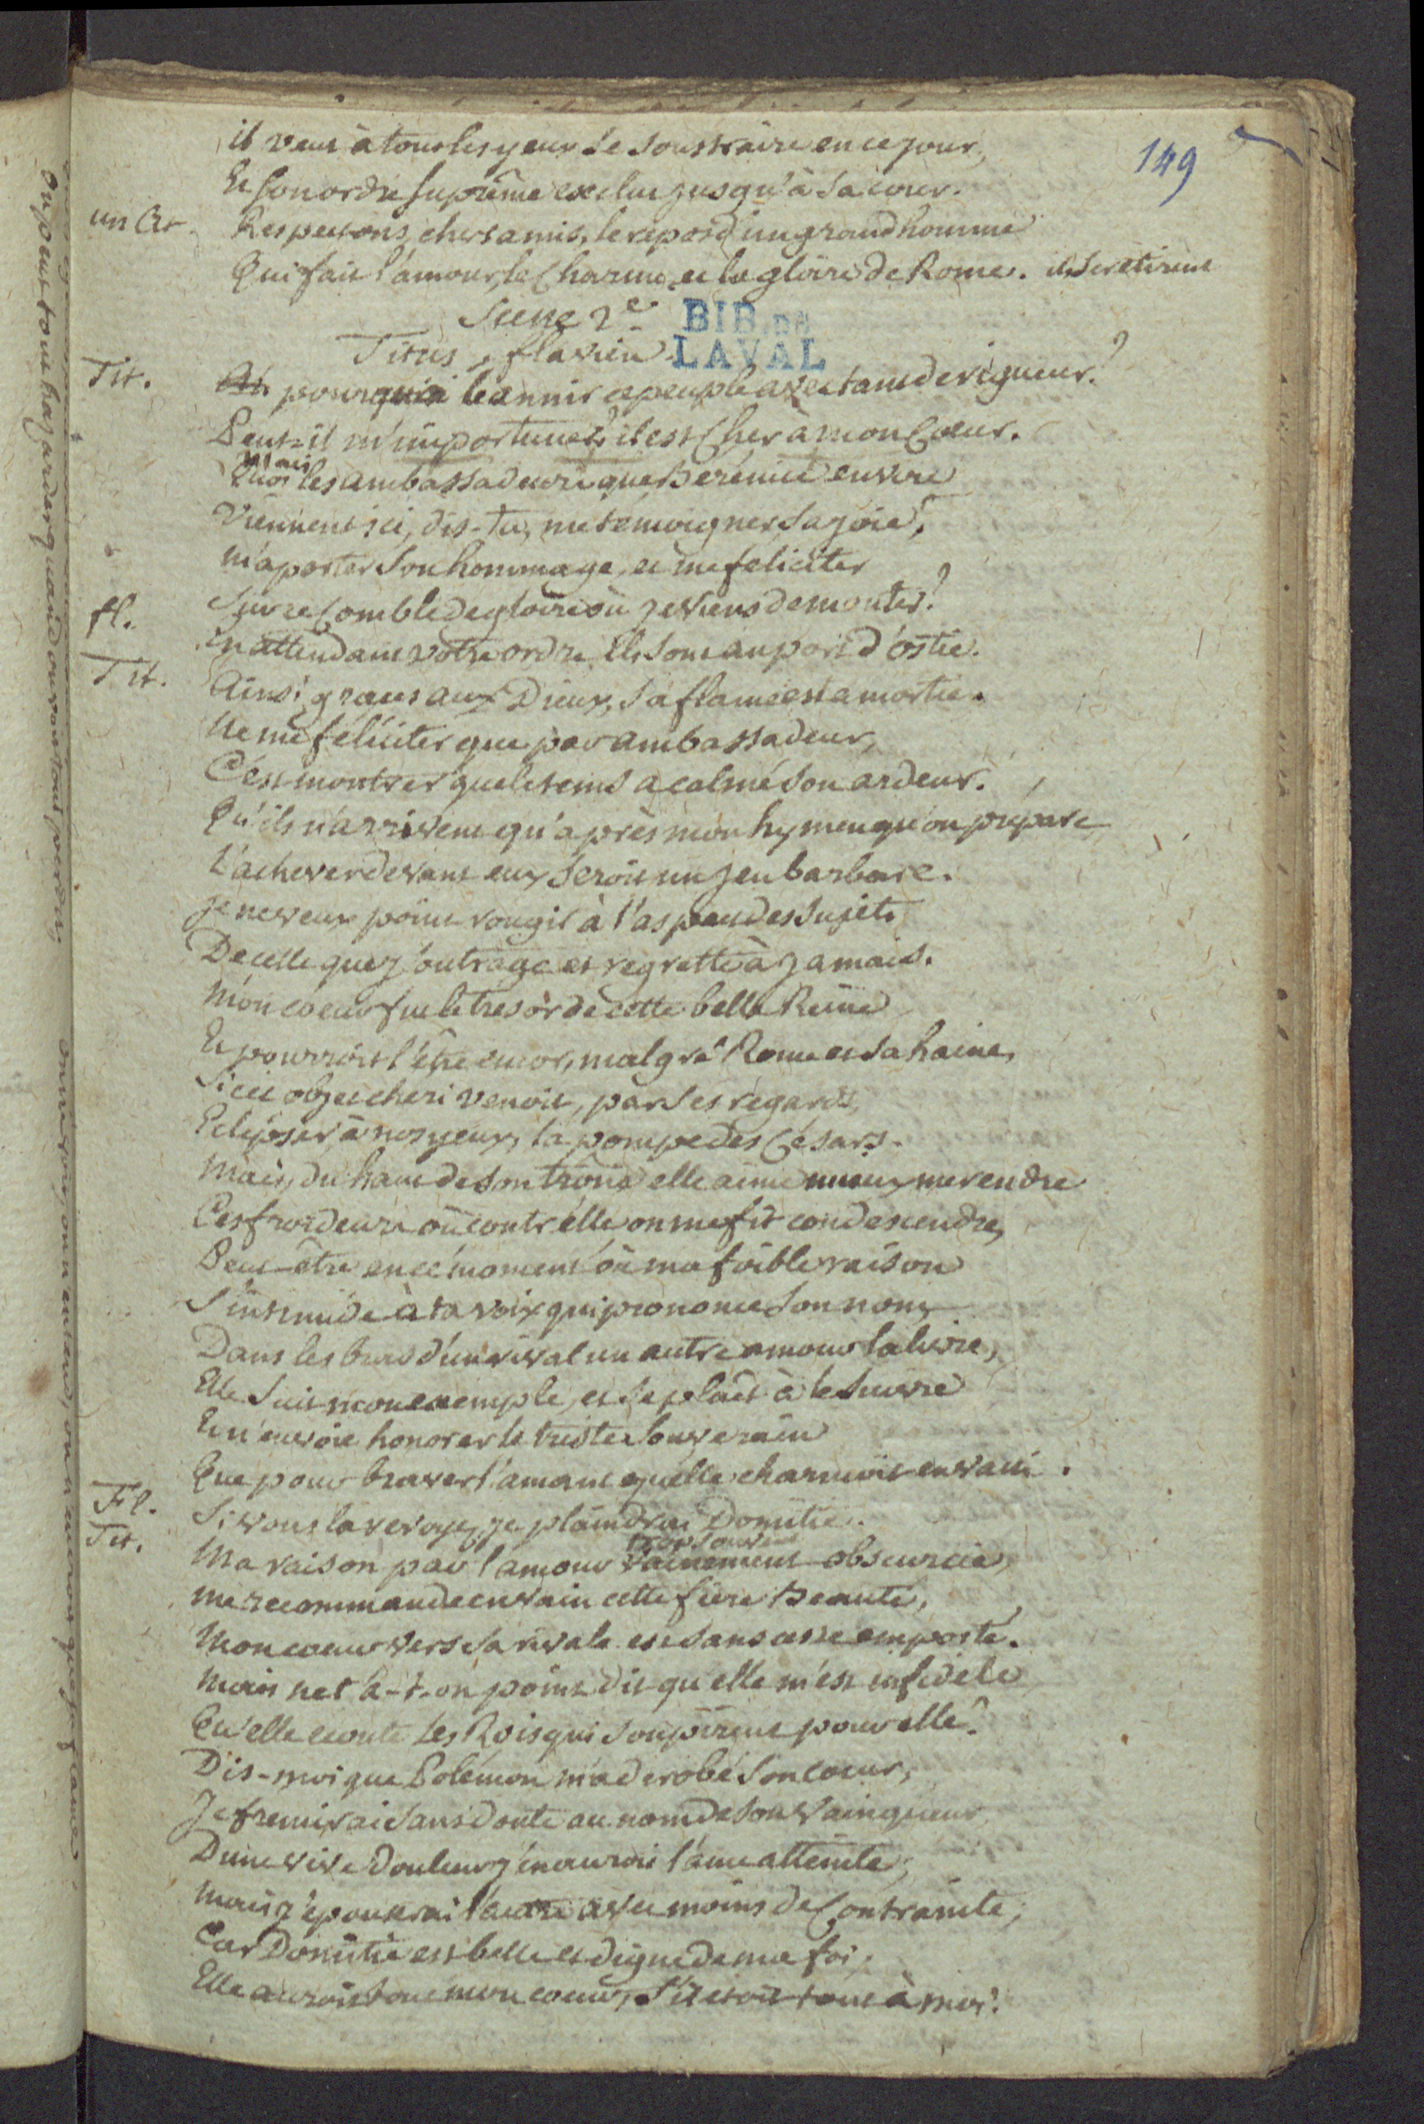 149
il veut à tous les yeux se soustraire en ce jour,
Et son ordre suprême exclut jusqu'à sa cour.
un Cit. Respectons, chers amis, le repos d'un grand homme
Qui fait l'amour, le Charme, et la gloire de Rome. ils se retirent
Scene 2e
BIB. DE LAVAL
Titus, flavien.
Tit. Ah pourquoi bannir ce peuple avec tant de rigueur?
Peut-il m'importuner? il est Cher à mon Coeur.
Mais les ambassadeurs que Berénice envoie
Viennent ici, dis-tu, me temoigner sa joie,
m'aporter son hommage, et me feliciter
Sur ce Comble de gloire où je viens de monter?
fl. En attendant votre ordre ils sont au port d'ostie.
Tit. Ainsi graces aux Dieux, sa flame est amortie.
Ne me féliciter que par ambassadeur,
C'est montrer que le tems a calmé son ardeur.
Qu'ils n'arrivent qu'après mon hymen qu'on prépare
L'achever devant eux seroit un jeu barbare.
je ne veux point rougir à l'aspect des sujets
De celle que j'outrage et regrette à jamais.
mon coeur fut le tresor de cette belle Reine
Et pourroit l'être encor, malgré Rome et sa haine,
Si cet objet cheri venoit, par ses régards,
Eclipser à nos yeux, la pompe des Césars.
Mais, du haut de son trône elle aime mieux me rendre
Ces froideurs où contr'elle on me fit condescendre,
Peut-être en ce moment où ma foible raison
S'intimide à ta voix qui prononce son nom,
Dans les bras d'un rival un autre amour la livre,
Elle suit mon exemple, et se plait à le suivre
Et n'envoie honorer le triste souverain
Que pour braver l'amant qu'elle charmoit en vain.
Fl. Si vous la revoyez, je plaindrai Domitie.
Tit. Ma raison par l'amour vainement trop souvent obscurcie,
me recommande en vain cette fiere Beauté,
Mon coeur vers sa rivale est sans cesse emporté.
Mais ne t'a-t-on point dit qu'elle m'est infidele
Qu'elle ecoute les Rois qui soupirent pour elle?
Dis-moi que Polémon m'a derobé son coeur,
Je fremirai sans doute au nom de son vainqueur
D'une vive douleur j'en aurai l'ame atteinte,
mais j'épouserai l'autre avec moins de Contrainte;
Car Domitie est belle et digne de ma foi,
Elle auroit tout mon coeur, s'il etoit tout à moi.
on peut tout hazarder quand on voit tout perdu,